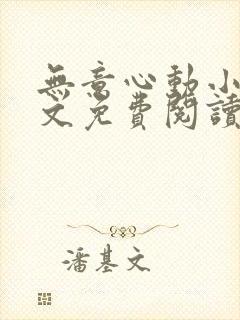 無意心動小
文免費閱讀
潘基文